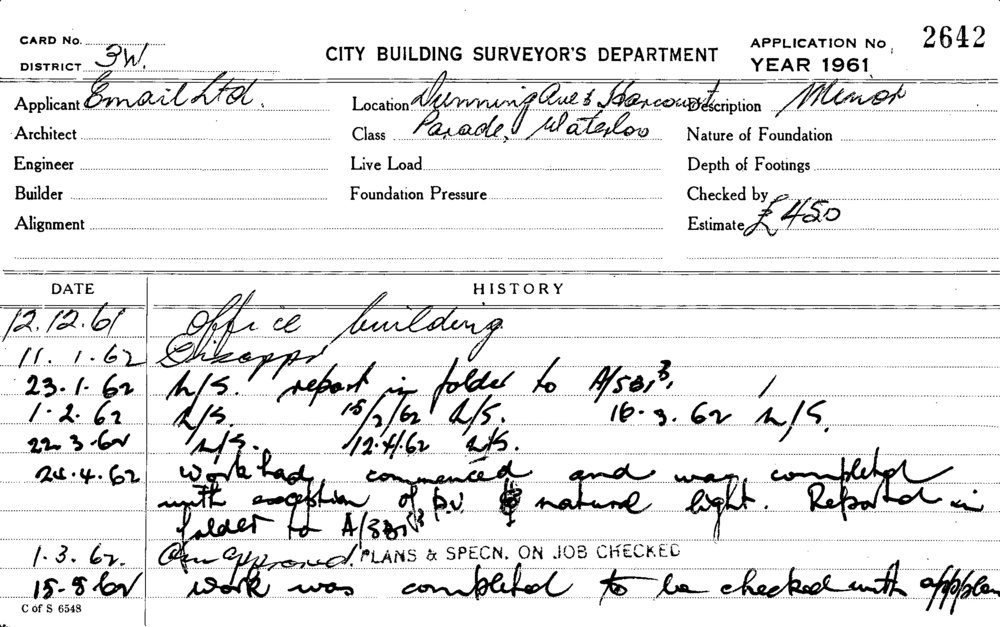 CARD No.
DISTRICT 3W.
CITY BUILDING SURVEYOR'S DEPARTMENT
APPLICATION No. 2642
YEAR 1961
Applicant Email Ltd. Location Dunning Ave & Harcourt Description Minor
Architect Class Parade, Waterloo Nature of Foundation
Engineer Live Load Depth of Footings
Builder Foundation Pressure Checked by
Alignment Estimate £450
DATE HISTORY
12.12.61 Office building
11.1.62 Disappr
23.1.62 N/S. report in folder to A/SBI
1.2.62 N/S. 15/2/62 N/S. 16.3.62 N/S.
22.3.62 N/S. 12.4.62 N/S.
24.4.62 work had commenced and was completed
with exception of P.V. & natural light. Reported in
folder to A/SBI
1.3.62. approved. PLANS & SPECN. ON JOB CHECKED
15-5-62 work was completed to be checked with app/plan
C of S 6548